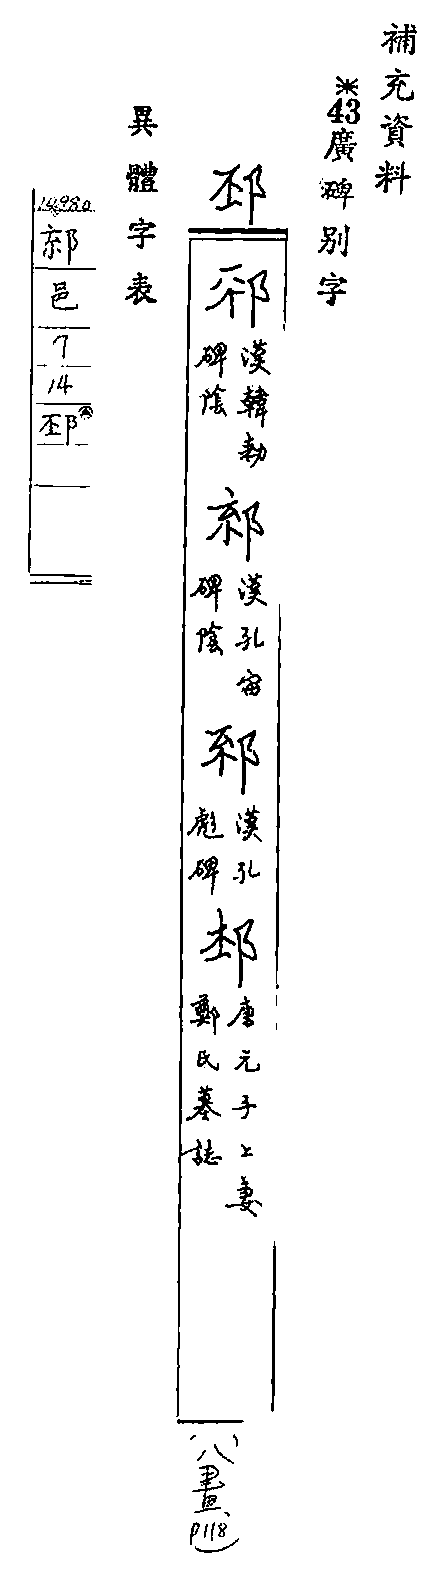 補充資料
※43廣碑別字
邳
漢韓勑
碑陰
漢孔宙
碑陰
漢孔
彪碑
唐元子上妻
鄭氏墓誌
八畫
P118
異體字表
邑
7
14
邳